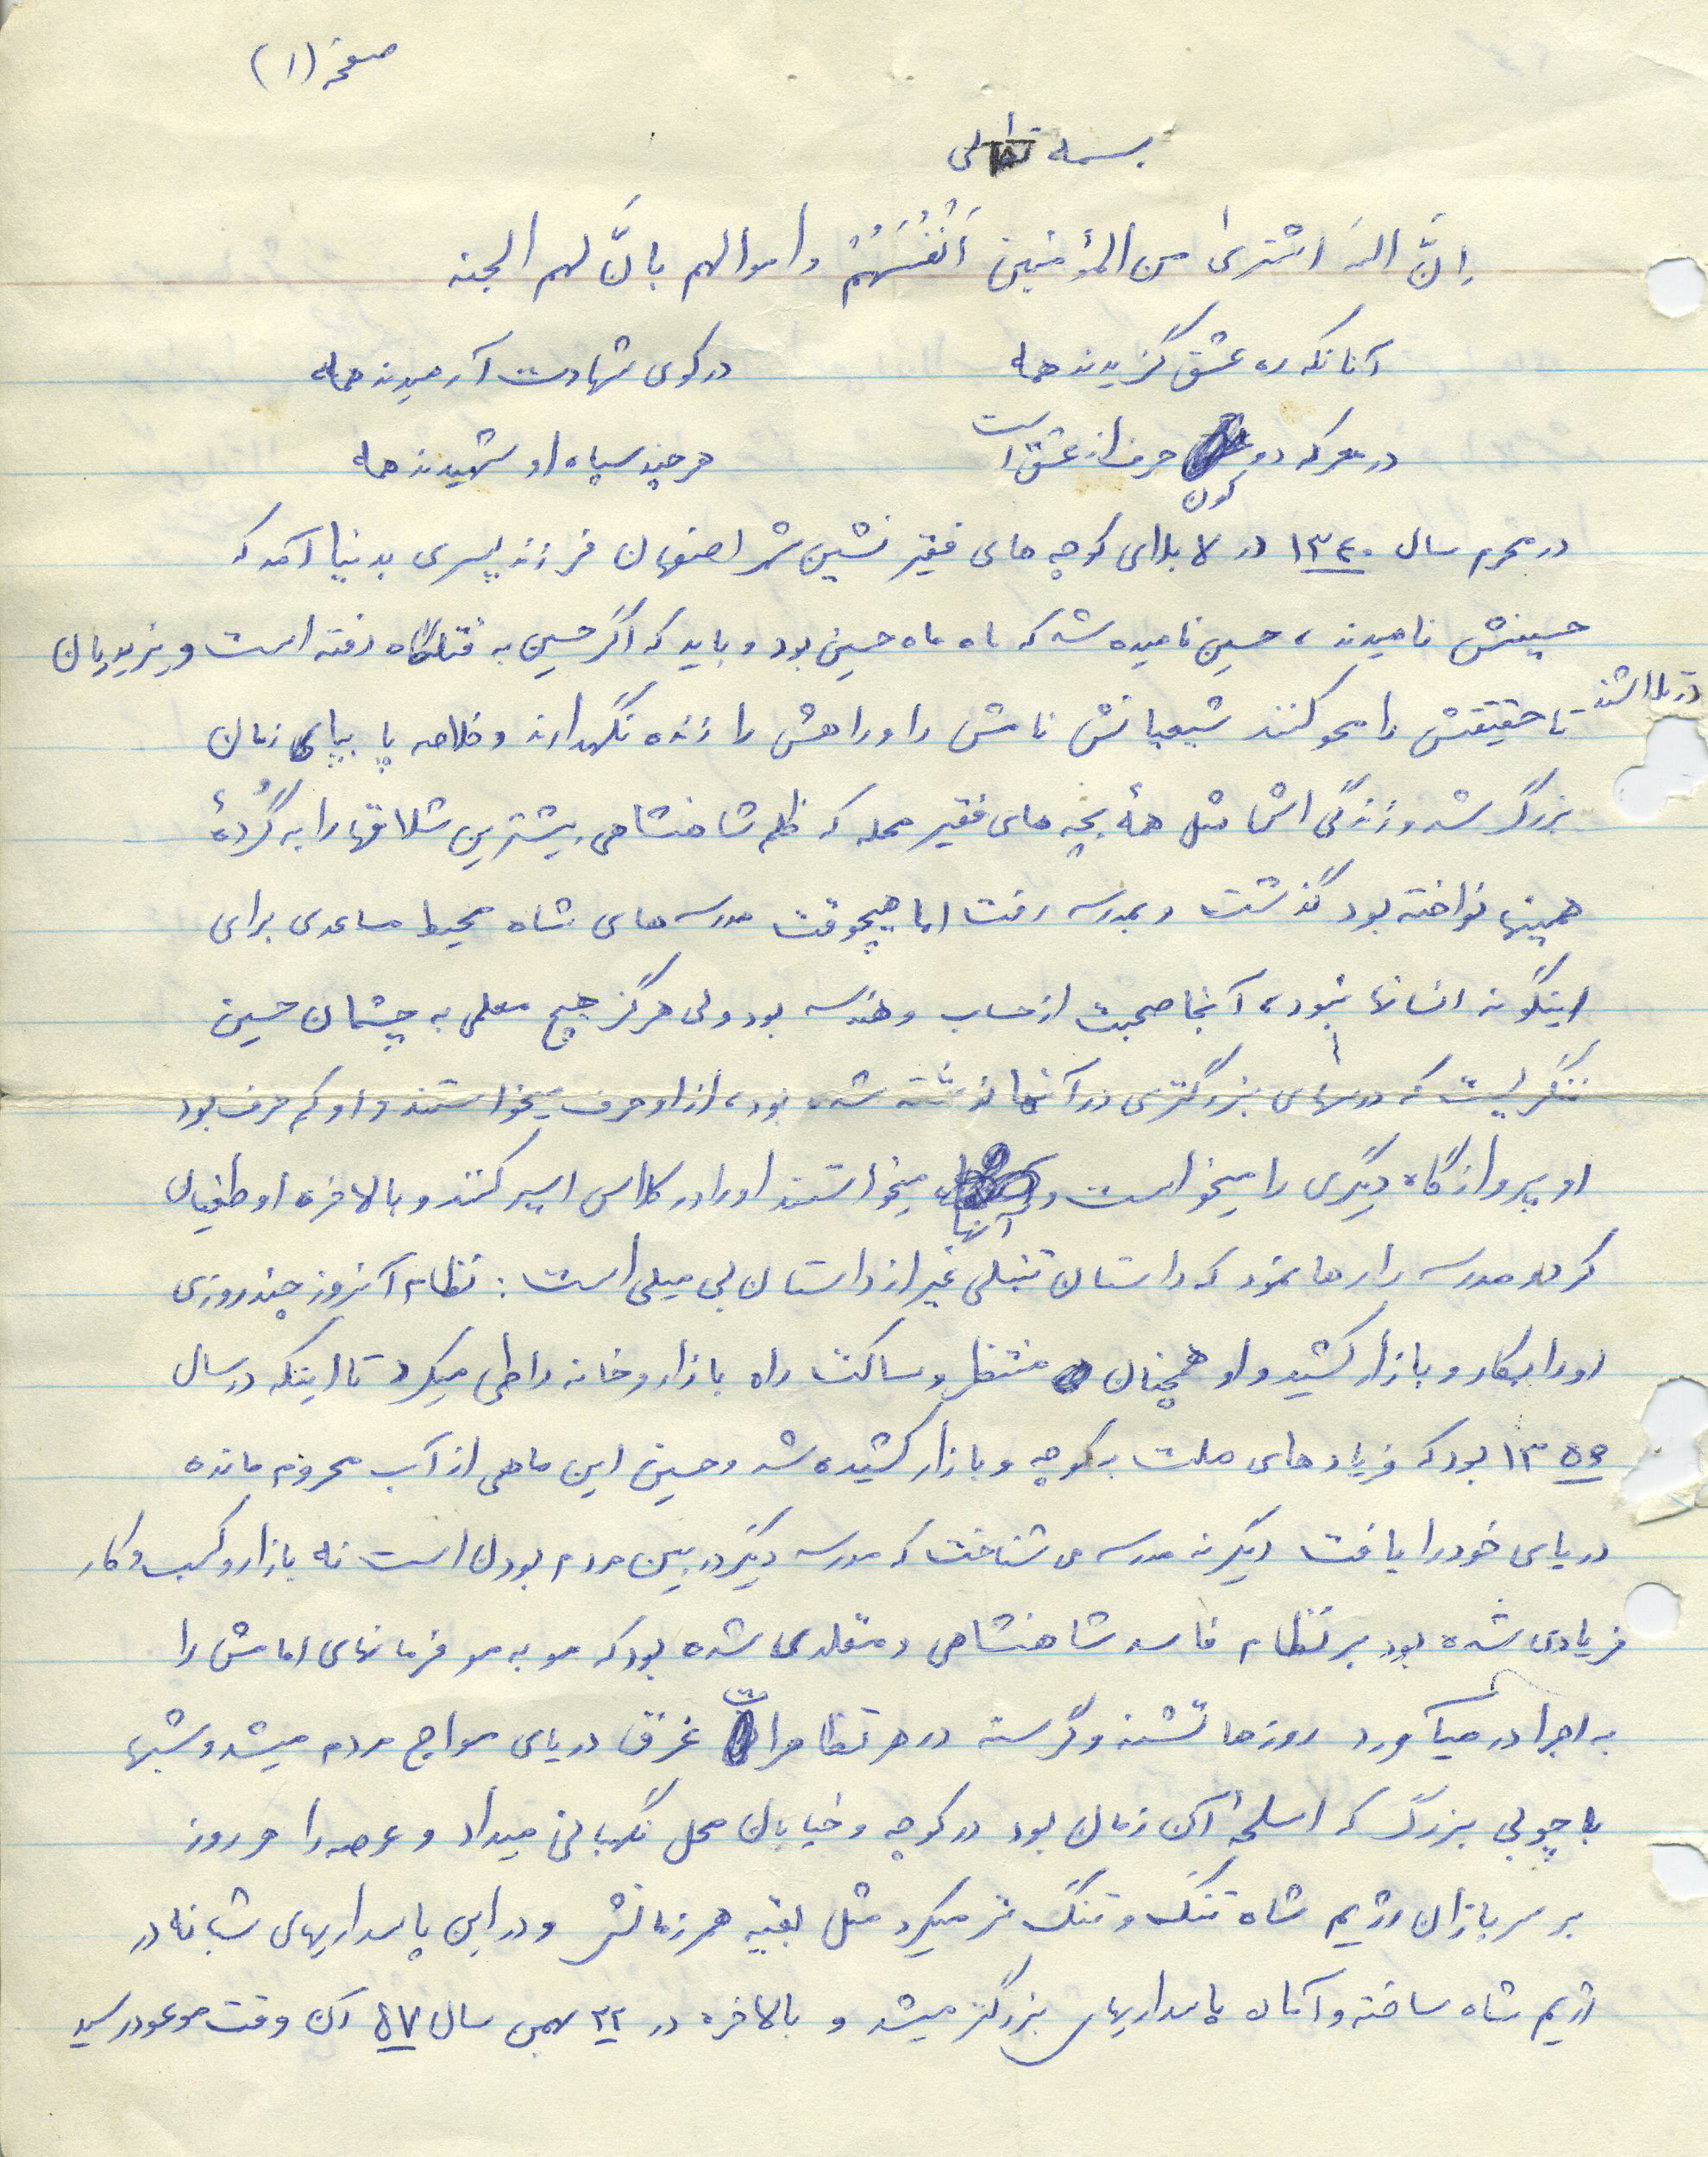 صفحه (۱)
بسمه تعالی
اِنَّ اللهَ اشتریٰ من المؤمنین اَنْفُسَهُمْ و اموالهم بانَّ لهم الجنه
آنانکه ره عشق گزیدند همه
در کوی شهادت آرمیدند همه
در معرکه دو کون حرف از عشق است
هر چند سپاه او شهیدند همه
در محرم سال ۱۳۴۰ در لابلای کوچه های فقیر نشین شهر اصفهان فرزند پسری بدنیا آمد که
حسینش نامیدند، حسین نامیده شد که ماه ماه حسین بود و باید که اگر حسین به قتلگاه رفته است و یزیدیان
در تلاشند
تا حقیقتش را محو کنند شیعیانش نامش را و راهش را زنده نگهدارند و خلاصه پا بپای زمان
بزرگ شد و زندگی اش مثل همهٔ بچه های فقیر محله که ظلم شاهنشاهی بیشترین شلاقها را به گُردهٔ
همینها نواخته بود گذشت و بمدرسه رفت اما هیچوقت مدرسه های شاه محیط مساعدی برای
اینگونه انسانها نبود، آنجا صحبت از حساب و هندسه بود ولی هرگز هیچ معلمی به چشمان حسین
ننگریست که درسهای بزرگتری در آنها نوشته شده بود، از او حرف میخواستند و او کم حرف بود
او پرواز گاه دیگری را میخواست و آنها میخواستند او را در کلاس اسیر کنند و بالاخره او طغیان
کرد و مدرسه را رها نمود که داستان تنبلی غیر از داستان بی میلی است : نظام آنروز چند روزی
او را بکار و بازار کشید و او همچنان منتظر و ساکت راه بازار و خانه را طی میکرد تا اینکه در سال
۱۳۵۶ بود که فریادهای ملت به کوچه و بازار کشیده شد و حسین این ماهی از آب محروم مانده
دریای خود را یافت دیگر نه مدرسه می شناخت که مدرسه دیگر در بین مردم بودن است نه بازار و کسب و کار
فریادی شده بود بر نظام فاسد شاهنشاهی و مقلدی شده بود که مو به مو فرمانهای امامش را
به اجرا در میآورد روزها تشنه و گرسنه در هر تظاهرات غرق دریای مواج مردم میشد و شبها
با چوبی بزرگ که اسلحهٔ آن زمان بود در کوچه و خیابان محل نگهبانی میداد و عرصه را هر روز
بر سربازان رژیم شاه تنگ و تنگ تر میکرد مثل بقیه همرزمانش و در این پاسداریهای شبانه در
رژیم شاه ساخته و آماده پاسداریهای بزرگتر میشد و بالاخره در ۲۲ بهمن سال ۵۷ آن وقت موعود رسید